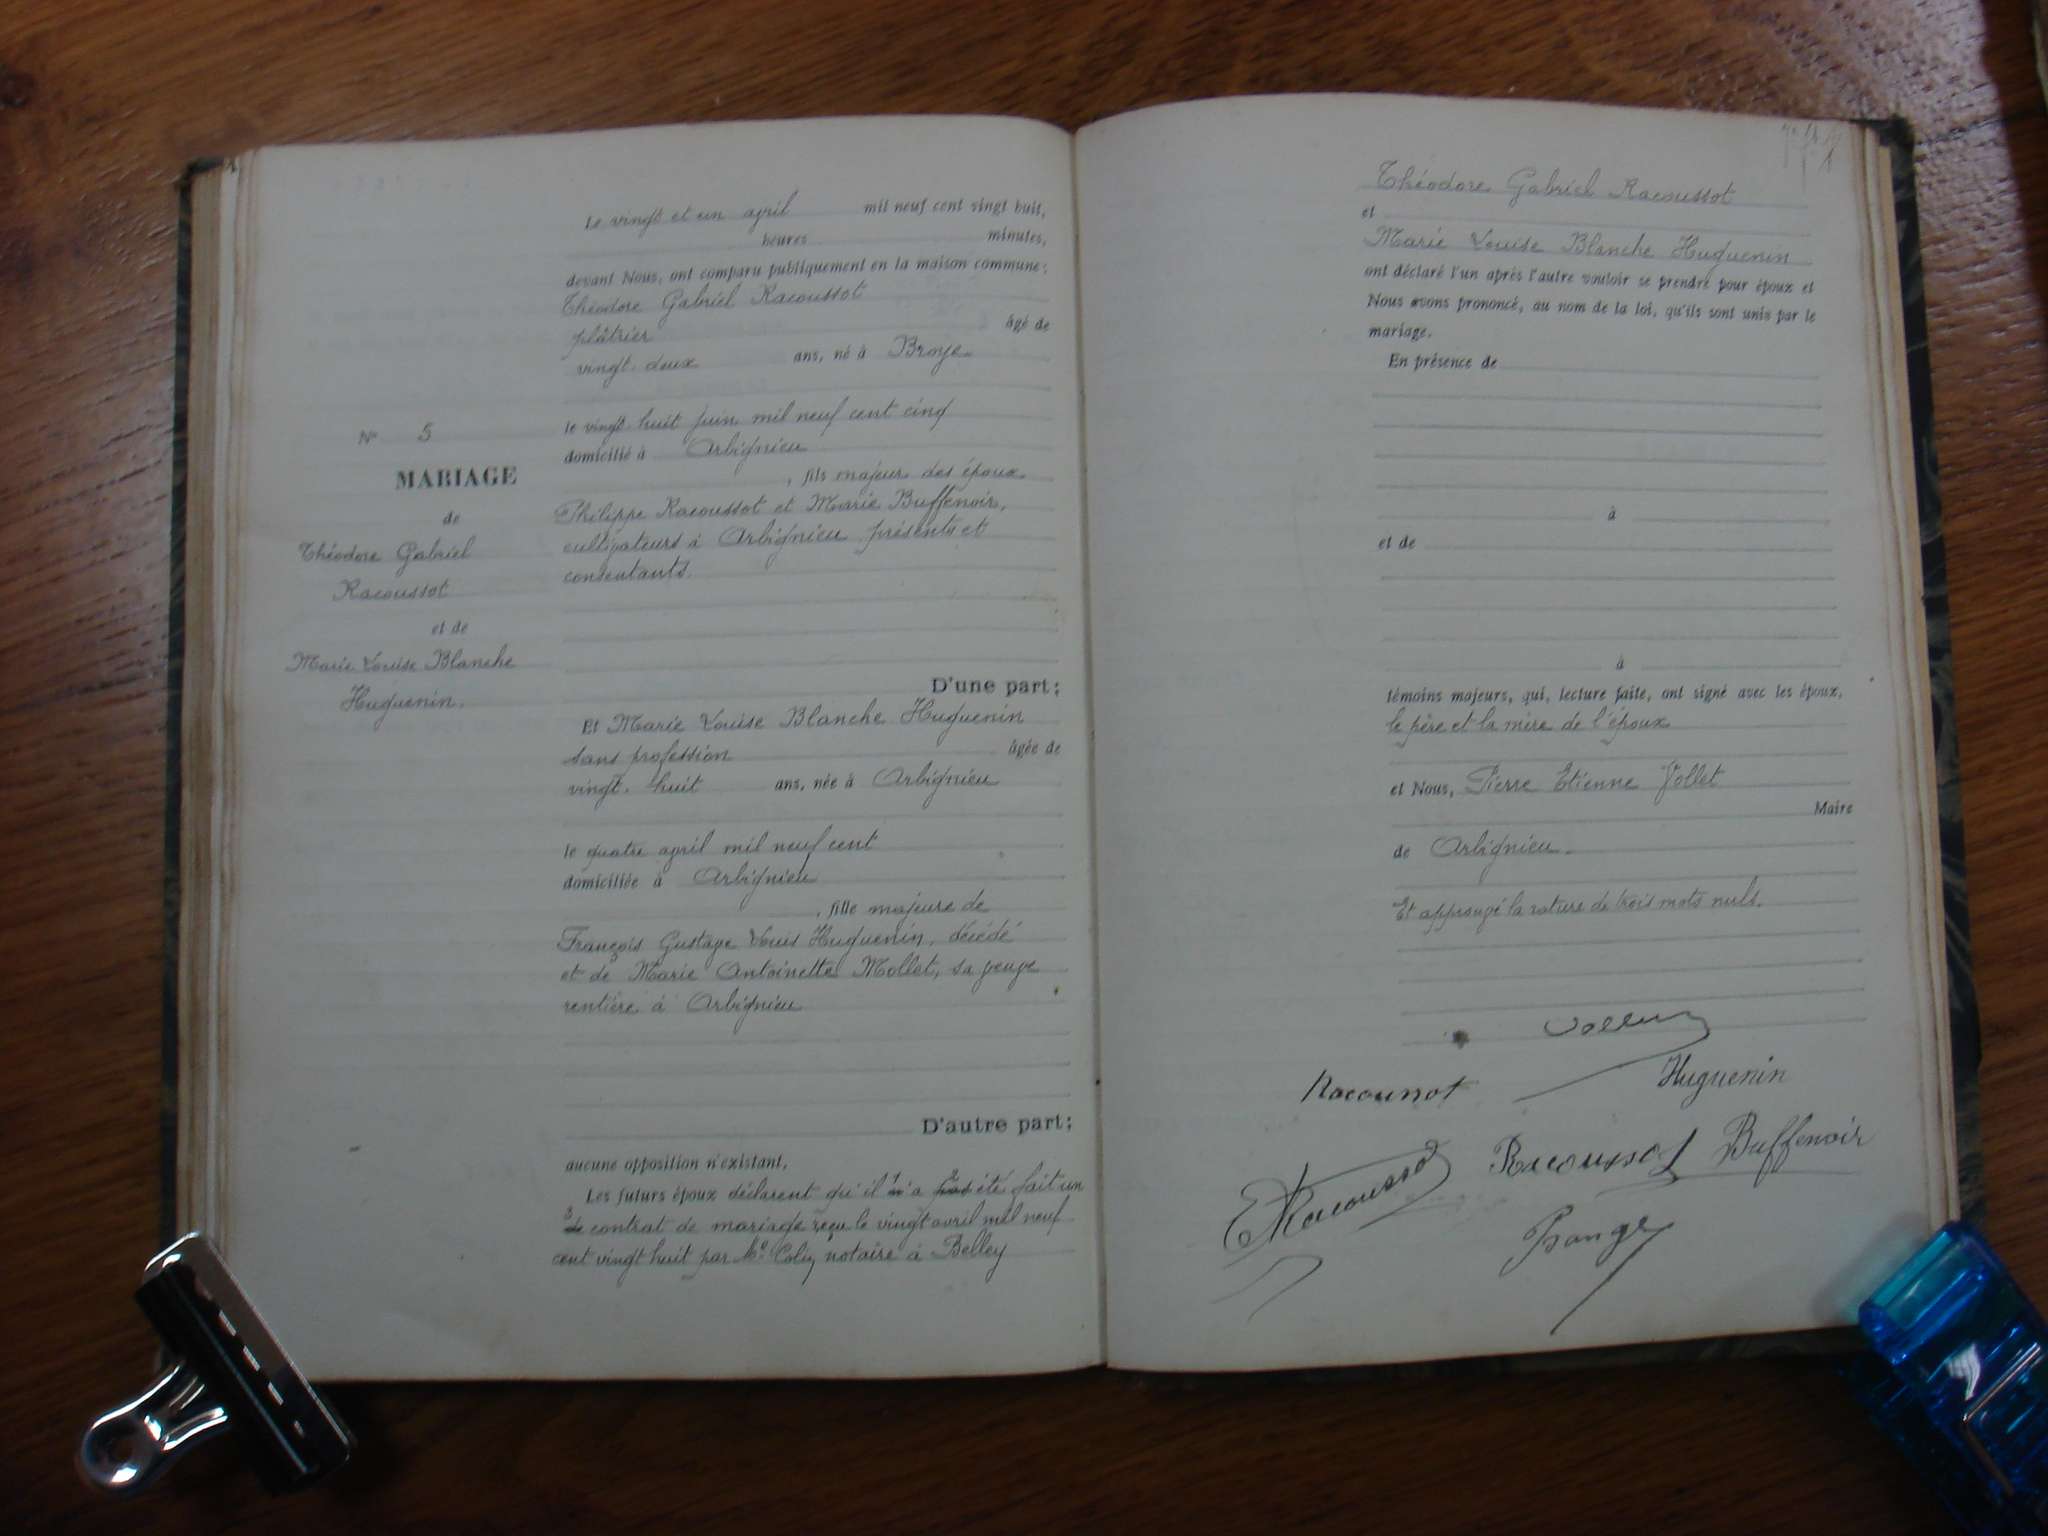 Le vingt et un avril mil neuf cent vingt huit,
heures minutes,
devant Nous, ont comparu publiquement en la maison commune:
Théodore Gabriel Racoussot
plâtrier âgé de
vingt deux ans, né à Broye
le vingt huit juin mil neuf cent cinq
domicilié à Arbignieu
, fils majeur des époux
Philippe Racoussot et Marie Buffenoir,
cultivateurs à Arbignieu présents et
consentants.
D'une part;
Et Marie Louise Blanche Huguenin
sans profession âgée de
vingt huit ans, née à Arbignieu
le quatre avril mil neuf cent
domiciliée à Arbignieu
, fille majeure de
François Gustave Louis Huguenin, décédé
et de Marie Antoinette Mollet, sa veuve
rentière à Arbignieu
D'autre part;
aucune opposition n'existant,
Les futurs époux déclarent qu'il 1 n'a 2 pas été fait un
3 de contrat de mariage reçu le vingt avril mil neuf
cent vingt huit par Me notaire à Belley
N° 5
MARIAGE
de
Théodore Gabriel
Racoussot
et de
Marie Louise Blanche
Huguenin.
Théodore Gabriel Racoussot
et
Marie Louise Blanche Huguenin
ont déclaré l'un après l'autre vouloir se prendre pour époux et
Nous avons prononcé, au nom de la loi, qu'ils sont unis par le
mariage.
En présence de
à
et de
à
témoins majeurs, qui, lecture faite, ont signé avec les époux,
le père et la mère de l'époux
et Nous, Pierre Etienne
Maire
de Arbignieu.
Et approuvé la rature de trois mots nuls.
Racoussot
Huguenin
Racoussot Racoussot Buffenoir